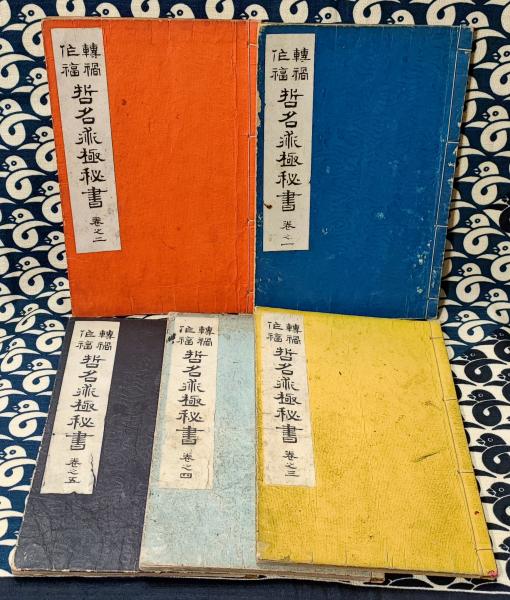 轉禍
作福
哲名術極秘書
卷之二
轉禍
作福
哲名術極秘書
卷之一
轉禍
作福
哲名術極秘書
卷之五
轉禍
作福
哲名術極秘書
卷之四
轉禍
作福
哲名術極秘書
卷之三